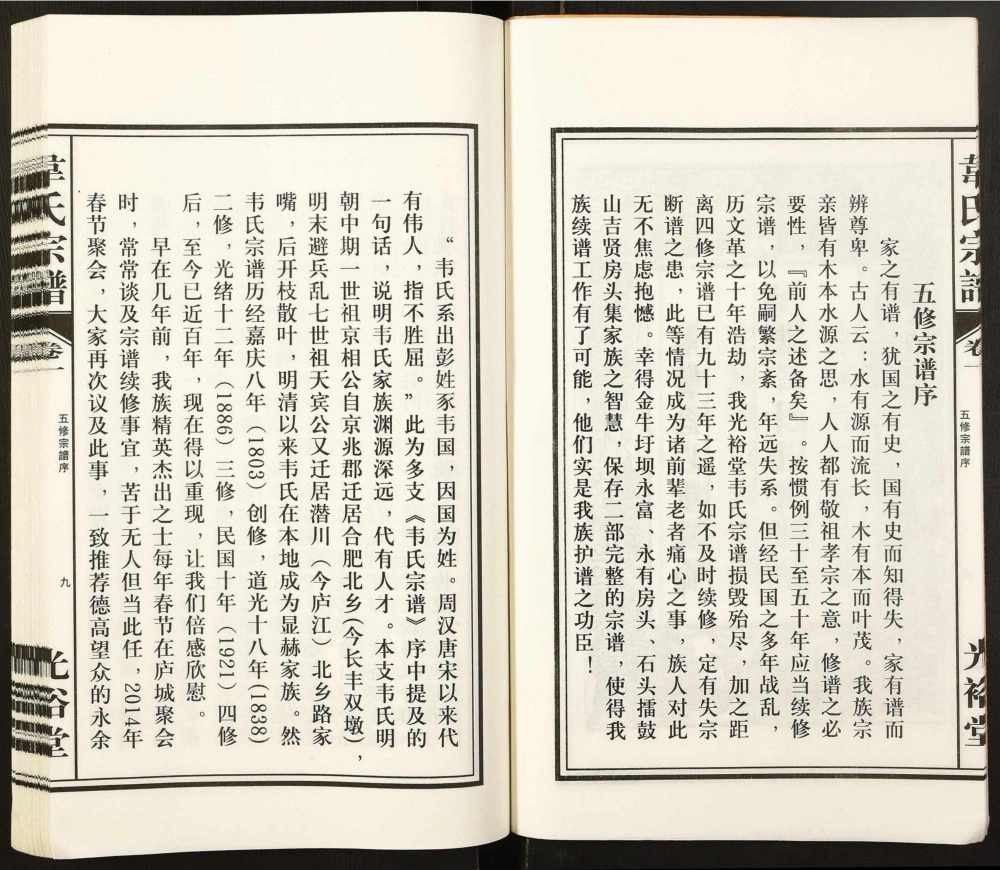 韋氏宗譜
卷一
五修宗譜序
光裕堂
五修宗谱序
家之有谱，犹国之有史，国有史而知得失，家有谱而
辨尊卑。古人云：水有源而流长，木有本而叶茂。我族宗
亲皆有木本水源之思，人人都有敬祖孝宗之意，修谱之必
要性，『前人之述备矣』。按惯例三十至五十年应当续修
宗谱，以免嗣繁宗紊，年远失系。但经民国之多年战乱，
历文革之十年浩劫，我光裕堂韦氏宗谱损毁殆尽，加之距
离四修宗谱已有九十三年之遥，如不及时续修，定有失宗
断谱之患，此等情况成为诸前辈老者痛心之事，族人对此
无不焦虑抱憾。幸得金牛圩坝永富、永有房头、石头擂鼓
山吉贤房头集家族之智慧，保存二部完整的宗谱，使得我
族续谱工作有了可能，他们实是我族护谱之功臣！
“韦氏系出彭姓豕韦国，因国为姓。周汉唐宋以来代
有伟人，指不胜屈。”此为多支《韦氏宗谱》序中提及的
一句话，说明韦氏家族渊源深远，代有人才。本支韦氏明
朝中期一世祖京相公自京兆郡迁居合肥北乡(今长丰双墩)，
明末避兵乱七世祖天宾公又迁居潜川（今庐江）北乡路家
嘴，后开枝散叶，明清以来韦氏在本地成为显赫家族。然
韦氏宗谱历经嘉庆八年（1803）创修，道光十八年(1838)
二修，光绪十二年（1886）三修，民国十年（1921）四修
后，至今已近百年，现在得以重现，让我们倍感欣慰。
早在几年前，我族精英杰出之士每年春节在庐城聚会
时，常常谈及宗谱续修事宜，苦于无人但当此任，2014年
春节聚会，大家再次议及此事，一致推荐德高望众的永余
韋氏宗譜
卷一
五修宗譜序
九
光裕堂